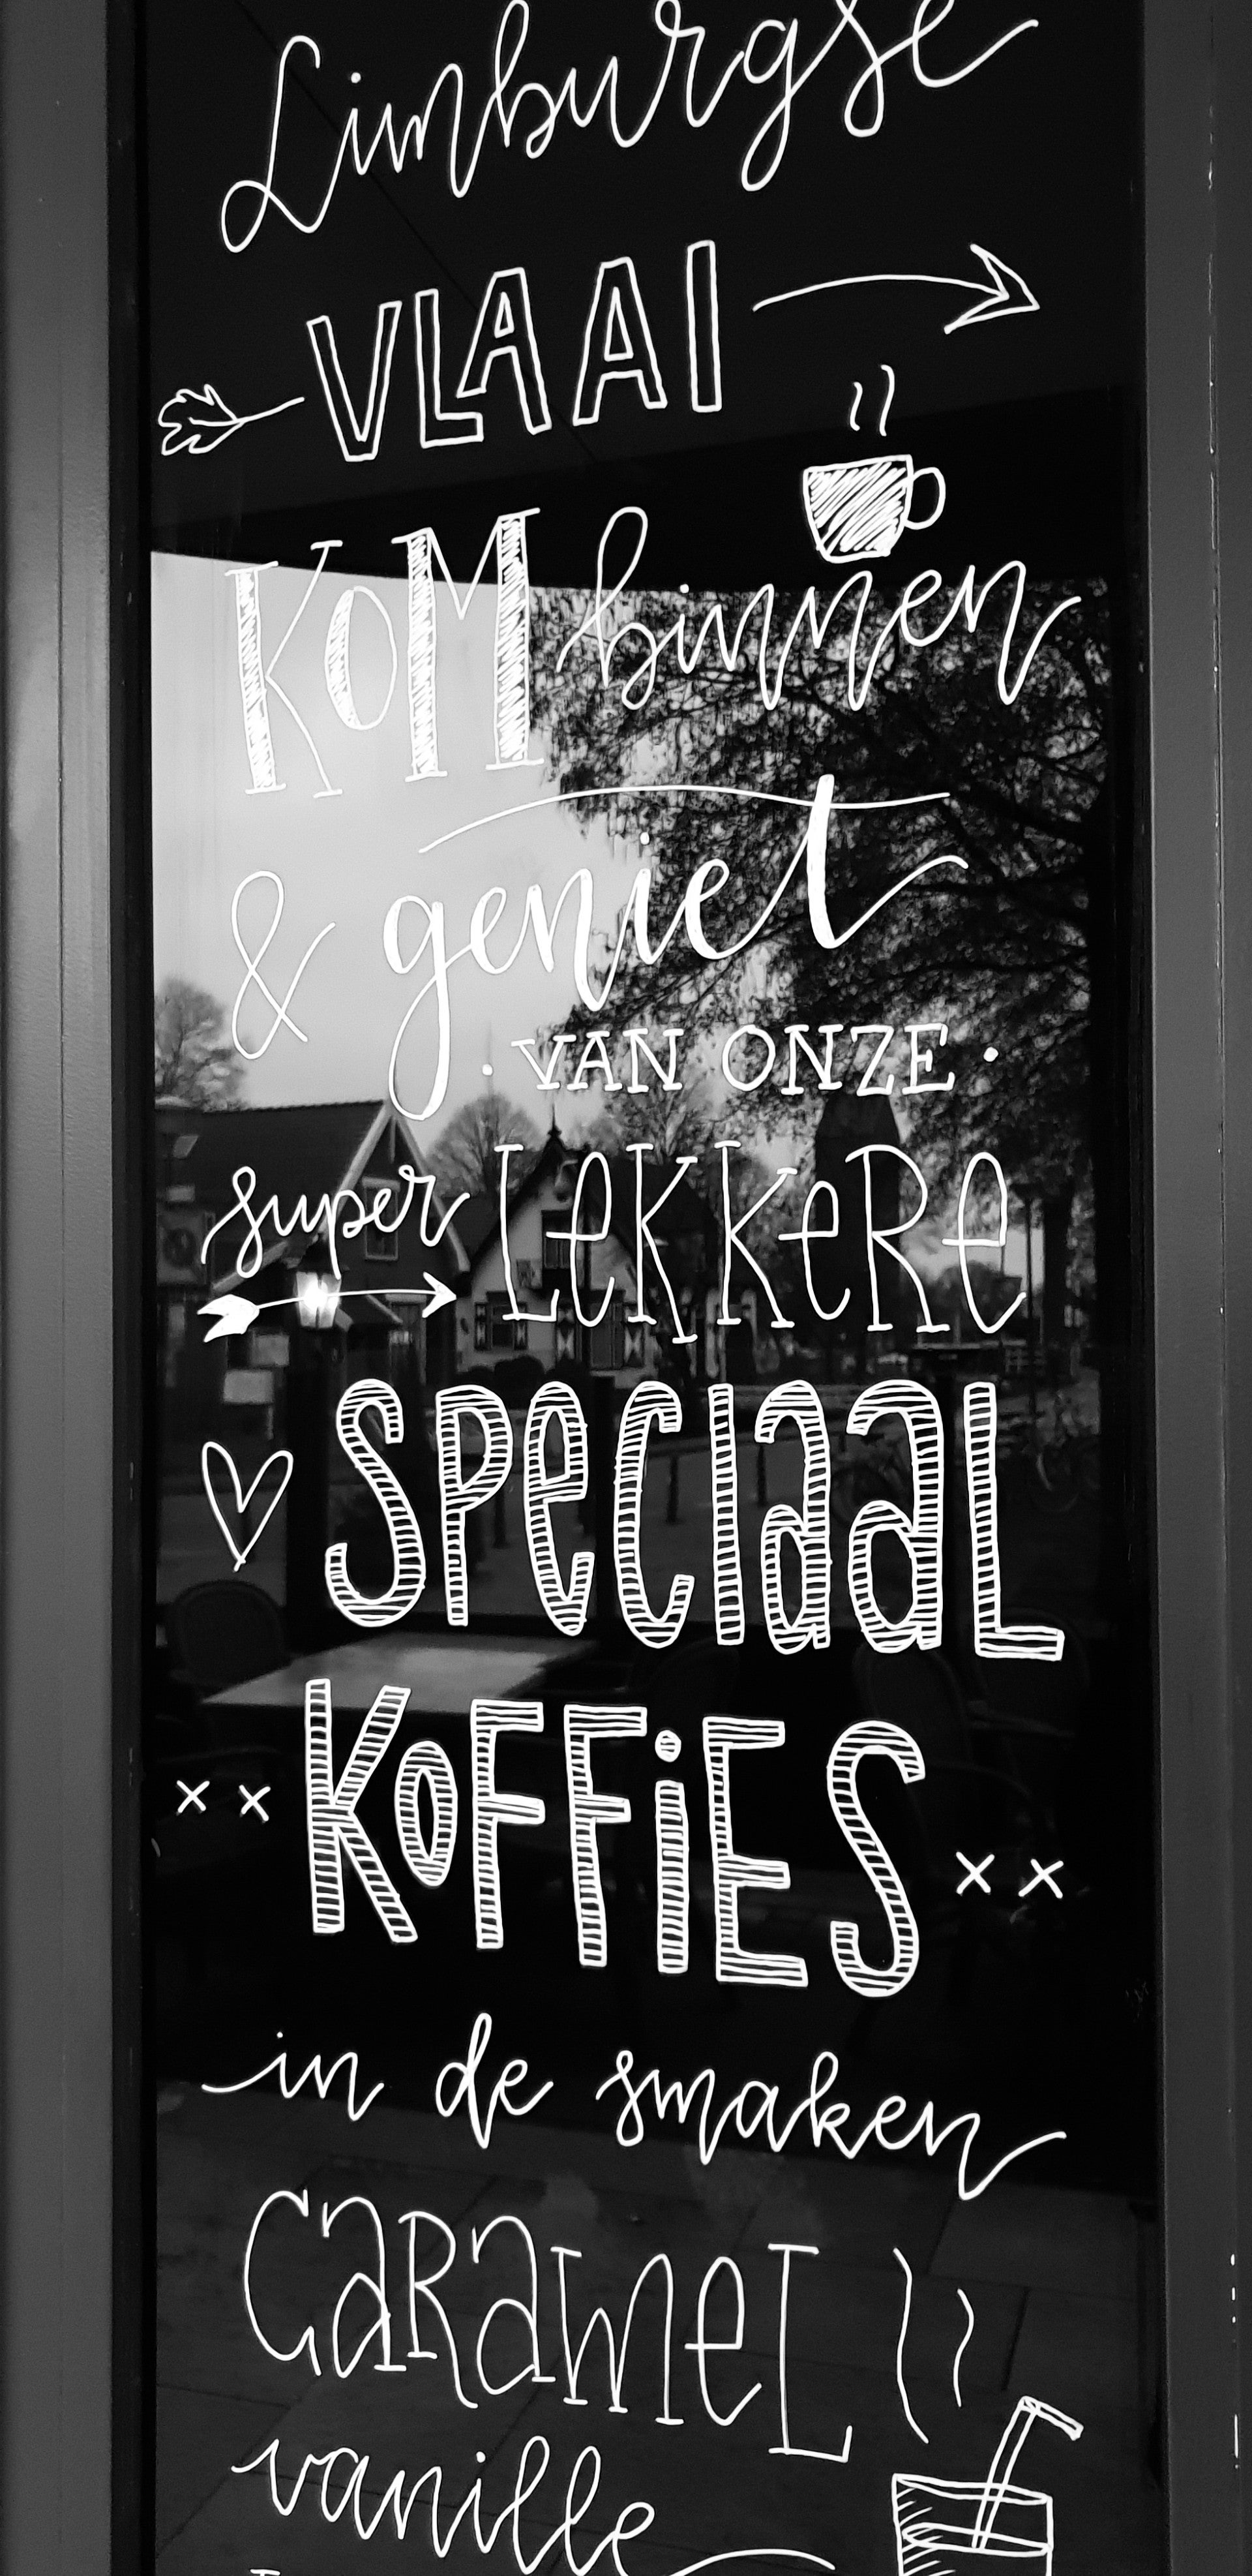 Limburgse
VLAAI
KOM binnen
& geniet
· VAN ONZE ·
super LeKKeRe
SPeCIaaL
KOFFiES
in de smaken
CaRameL
vanille